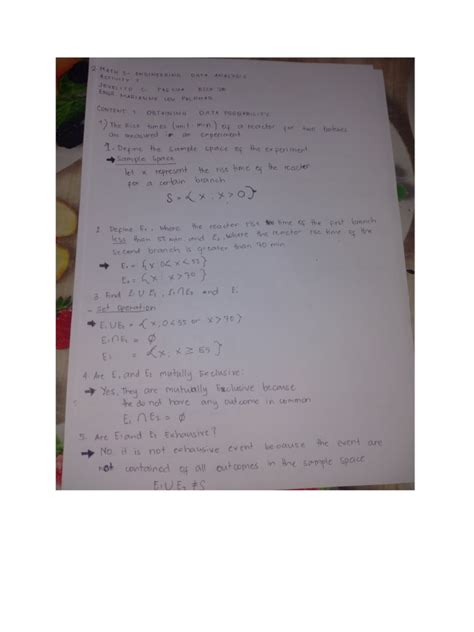 MATH 5- ENGINEERING DATA ANALYSIS
ACTIVITY 1
ENGR MARIANNE LOU PALOMAR
CONTENT: OBTAINING DATA PROBABILITY
The Rise times (unit min.) of a reactor for two batches
as measured in an experiment
1. Define the sample space of the experiment
→ Sample Space
let x represent the rise time of the reactor
for a certain branch
S = {x : x > 0}
2. Define E₁, where the reactor rise time of the first branch
less than 55 min and E₂, where the reactor rise time of the
second branch is greater than 70 min
→ E₁ = {x : 0 < x < 55}
E₂ = {x : x > 70}
3. Find E₁ ∪ E₂, E₁ ∩ E₂ and E₁
- Set Operation
→ E₁ ∪ E₂ = { x ; 0 < 55 or x > 70}
E₁ ∩ E₂ = ∅
= {x : x ≥ 55}
4. Are E₁ and E₂ mutally Exclusive?
→ Yes, They are mutually Exclusive because
the do not have any outcome in common
E₁ ∩ E₂ = ∅
5. Are E₁ and E₂ Exhausive?
→ No. it is not exhausive event because the event are
not contained of all outcomes in the sample space
E₁ ∪ E₂ ≠ S